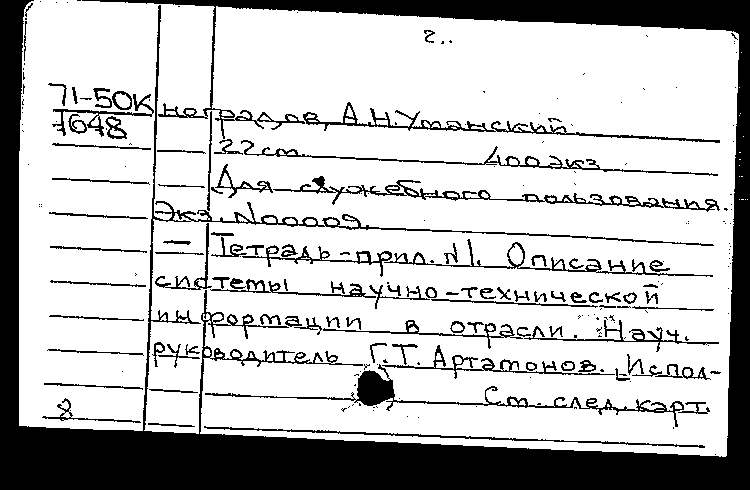 2..
71-50К ноградов, А.Н.Уманский.
7648
22 см. 400 экз.
Для служебного пользования.
Экз. N00009.
— Тетрадь-прил. N1. Описание
системы научно-технической
информации в отрасли. Науч.
руководитель Г.Т. Артамонов. Испол-
См. след. карт.
8